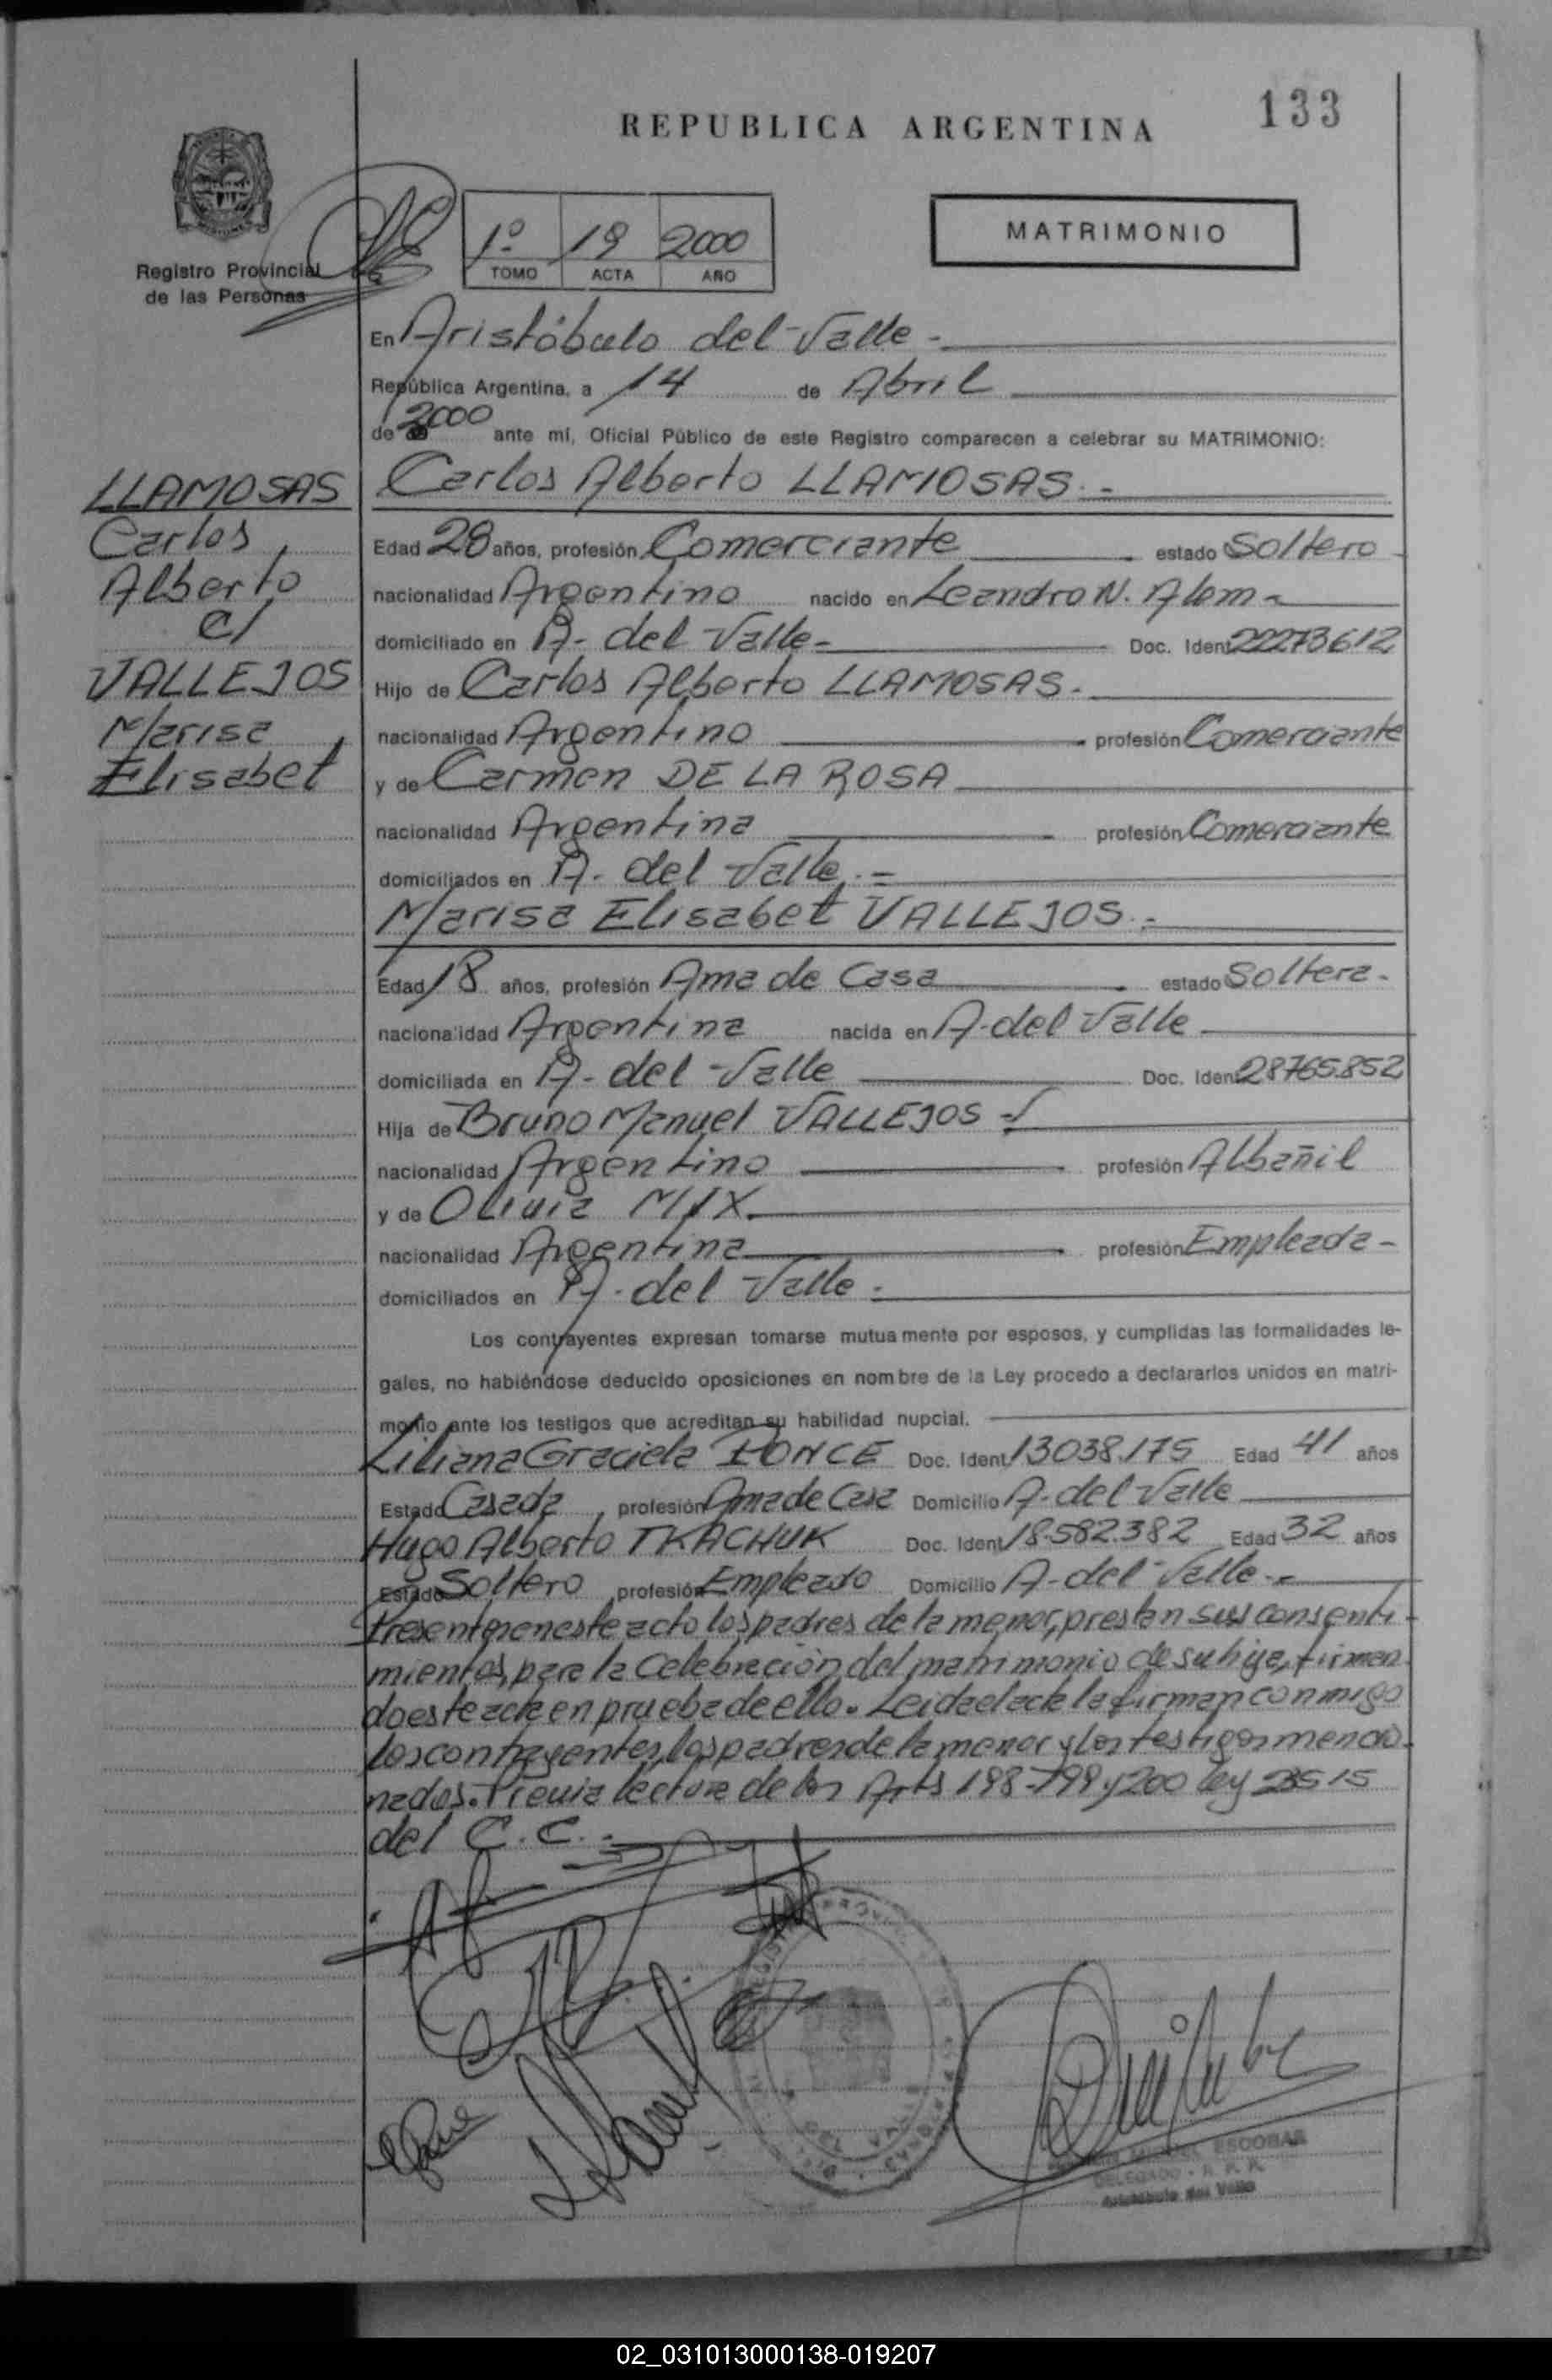 REPUBLICA ARGENTINA
133
Registro Provincial
de las Personas
1º 19 2000
TOMO ACTA AÑO
MATRIMONIO
En Aristóbulo del Valle -
República Argentina, a 14 de Abril
de 2000 ante mí, Oficial Público de este Registro comparecen a celebrar su MATRIMONIO:
LLAMOSAS
Carlos
Alberto
C/
VALLEJOS
Marisa
Elisabet
Carlos Alberto LLAMOSAS.-
Edad 28 años, profesión Comerciante estado Soltero
nacionalidad Argentino nacido en Leandro N. Alem -
domiciliado en A- del Valle- Doc. Ident 22273612
Hijo de Carlos Alberto LLAMOSAS.
nacionalidad Argentino profesión Comerciante
y de Carmen DE LA ROSA
nacionalidad Argentina profesión Comerciante
domiciliados en A- del Valle.-
Marisa Elisabet VALLEJOS.-
Edad 18 años, profesión Ama de Casa estado Soltera-
nacionalidad Argentina nacida en A-del Valle
domiciliada en A- del Valle Doc. Ident 28765.852
Hija de Bruno Manuel VALLEJOS
nacionalidad Argentino profesión Albañil
y de Olivia
nacionalidad Argentina profesión Empleada-
domiciliados en A-del Valle-
Los contrayentes expresan tomarse mutuamente por esposos, y cumplidas las formalidades le-
gales, no habiéndose deducido oposiciones en nombre de la Ley procedo a declararlos unidos en matri-
monio ante los testigos que acreditan su habilidad nupcial.
Liliana Graciela PONCE Doc. Ident 13038.175 Edad 41 años
Estado Casada, profesión Ama de Casa Domicilio A-del Valle
Hugo Alberto TKACHUK Doc. Ident 18.582.382 Edad 32 años
Estado Soltero profesión Empleado Domicilio A-del Valle.-
Presente en este acto los padres de la menor, prestan sus consenti-
mientos, para la Celebración del matrimonio de su hija, firman
do este acta en prueba de ello. Leida el acta la firman conmigo
los contrayentes, los padres de la menor y los testigos mencio-
nados. Previa lectura de los Arts 198-199 y 200 ley 23515
del C.C.-
MIGUEL ESCOBAR
DELEGADO - R. P. P.
Aristóbulo del Valle
02_031013000138-019207